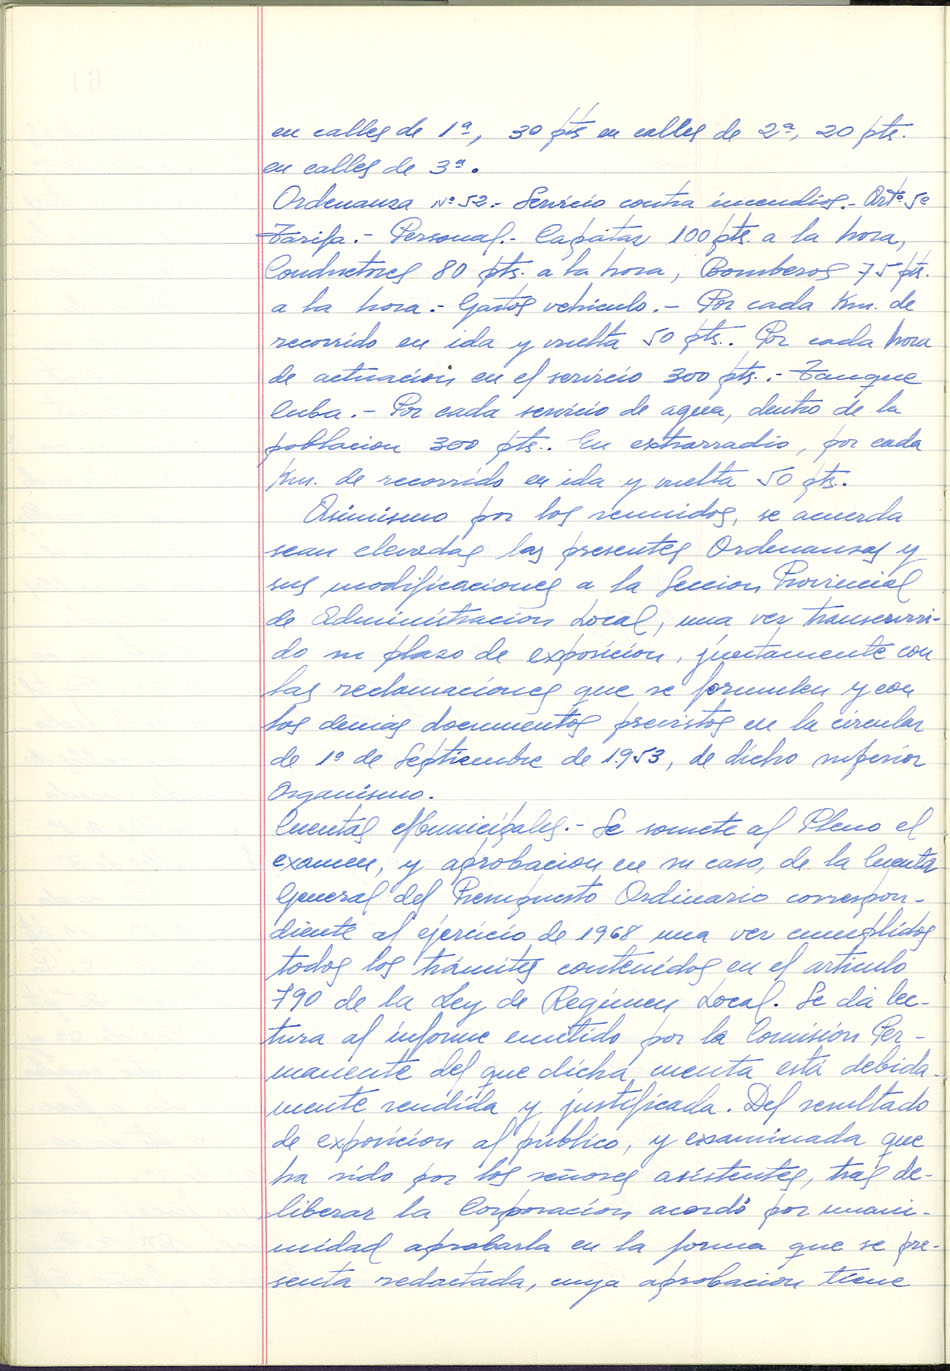 en calles de 1ª, 30 pts en calles de 2ª, 20 pts.
en calles de 3ª.
Ordenanza nº 52.- Servicio contra incendios.- Artº 5º
Tarifa.- Personal.- Capataz 100 pts. a la hora,
Conductores 80 pts. a la hora, Bomberos 75 pts.
a la hora.- Gastos vehiculo.- Por cada Km. de
recorrido en ida y vuelta 50 pts.. Por cada hora
de actuacion en el servicio 300 pts.:- Tanque
Cuba.- Por cada servicio de agua, dentro de la
poblacion 300 pts.. En extrarradio, por cada
Km. de recorrido en ida y vuelta 50 pts.
Asimismo por los reunidos, se acuerda
sean elevadas las presentes Ordenanzas y
sus modificaciones a la Seccion Provincial
de Administracion Local, una vez transcurri-
do su plazo de exposicion, juntamente con
las reclamaciones que se formulen y con
los demas documentos previstos en la circular
de 1º de Septiembre de 1.953, de dicho superior
Organismo.
Cuentas Municipales.- Se somete al Pleno el
examen, y aprobacion en su caso, de la Cuenta
General del Presupuesto Ordinario correspon-
diente al ejercicio de 1968 una vez cumplidos
todos los trámites contenidos en el articulo
790 de la Ley de Regimen Local. Se dá lec-
tura al informe emitido por la Comisión Per-
manente del que dicha cuenta está debida-
mente rendida y justificada. Del resultado
de exposicion al público, y examinada que
ha sido por los señores asistentes, tras de-
liberar la Corporacion acordó por unani-
midad aprobarla en la forma que se pre-
senta redactada, cuya aprobacion tiene